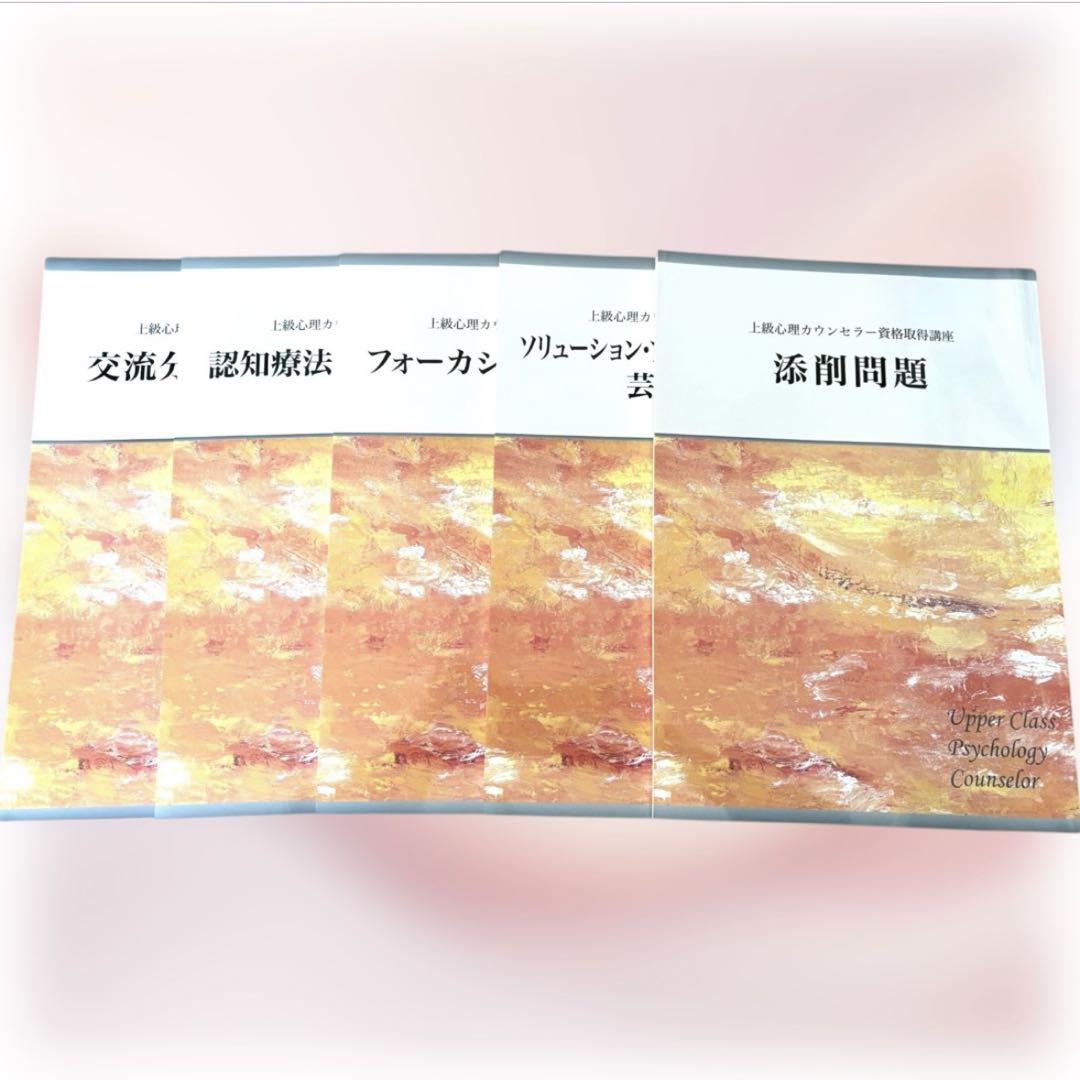 上級心理
交流分
上級心理カ
認知療法
上級心理カウ
フォーカシ
上級心理カ
ソリューション・
芸
上級心理カウンセラー資格取得講座
添削問題
Upper Class
Psychology
Counselor